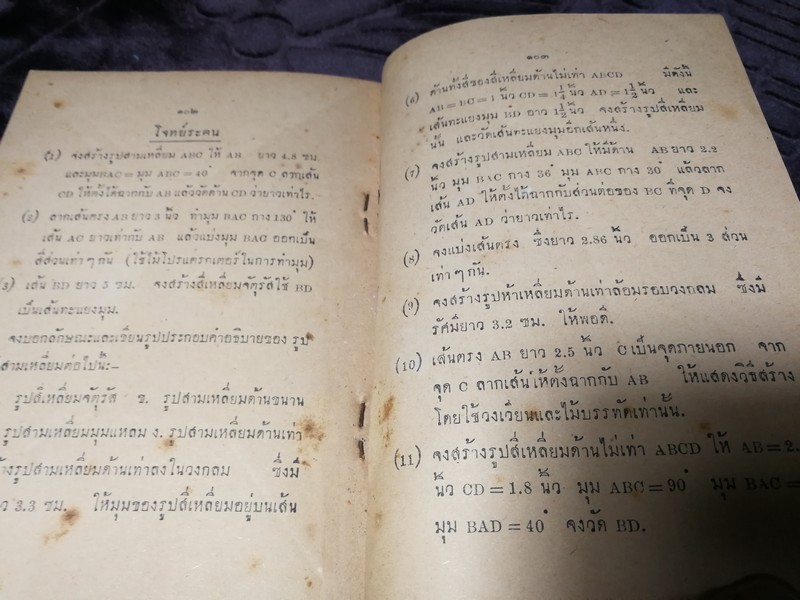 ๑๐๒
โจทย์ระคน
(1) จงสร้างรูปสามเหลี่ยม ABC ให้ AB ยาว 4.8 ซม.
และมุมBAC= มุม ABC = 40° จากจุด C ลากเส้น
CD ให้ตั้งได้ฉากกับ AB แล้ววัดด้าน CD ว่ายาวเท่าไร.
(2) ลากเส้นตรง AB ยาว 3 นิ้ว ทำมุม BAC กาง 130° ให้
เส้น AC ยาวเท่ากับ AB แล้วแบ่งมุม BAC ออกเป็น
สี่ส่วนเท่า ๆ กัน (ใช้ไม้โปรแครกเตอร์ในการทำมุม)
3) เส้น BD ยาว 5 ซม. จงสร้างสี่เหลี่ยมจัตุรัสใช้ BD
เป็นเส้นทะแยงมุม.
จงบอกลักษณะและเขียนรูปประกอบคำอธิบายของ รูป
สามเหลี่ยมต่อไปนี้:—
รูปสี่เหลี่ยมจัตุรัส ข. รูปสามเหลี่ยมด้านขนาน
รูปสามเหลี่ยมมุมแหลม ง. รูปสามเหลี่ยมด้านเท่า
างรูปสามเหลี่ยมด้านเท่าลงในวงกลม ซึ่งมี
ว 3.3 ซม. ให้มุมของรูปสี่เหลี่ยมอยู่บนเส้น
๑๐๓
(6) ด้านทั้งสี่ของสี่เหลี่ยมด้านไม่เท่า ABCD มีดังนี้
AB = BC = 1 นิ้ว CD = 1¼ นิ้ว AD = 1½ นิ้ว และ
เส้นทะแยงมุม BD ยาว 1½ นิ้ว จงสร้างรูปสี่เหลี่ยม
นั้น และวัดเส้นทะแยงมุมอีกเส้นหนึ่ง.
(7) จงสร้างรูปสามเหลี่ยม ABC ให้มีด้าน AB ยาว 2.2
นิ้ว มุม BAC กาง 36° มุม ABC กาง 30° แล้วลาก
เส้น AD ให้ตั้งได้ฉากกับส่วนต่อของ BC ที่จุด D จง
วัดเส้น AD ว่ายาวเท่าไร.
(8) จงแบ่งเส้นตรง ซึ่งยาว 2.86 นิ้ว ออกเป็น 3 ส่วน
เท่า ๆ กัน.
(9) จงสร้างรูปห้าเหลี่ยมด้านเท่าล้อมรอบวงกลม ซึ่งมี
รัศมียาว 3.2 ซม. ให้พอดี.
(10) เส้นตรง AB ยาว 2.5 นิ้ว C เป็นจุดภายนอก จาก
จุด C ลากเส้นให้ตั้งฉากกับ AB ให้แสดงวิธีสร้าง
โดยใช้วงเวียนและไม้บรรทัดเท่านั้น.
(11) จงสร้างรูปสี่เหลี่ยมด้านไม่เท่า ABCD ให้ AB = 2.
นิ้ว CD = 1.8 นิ้ว มุม ABC = 90° มุม BAC =
มุม BAD = 40° จงวัด BD.